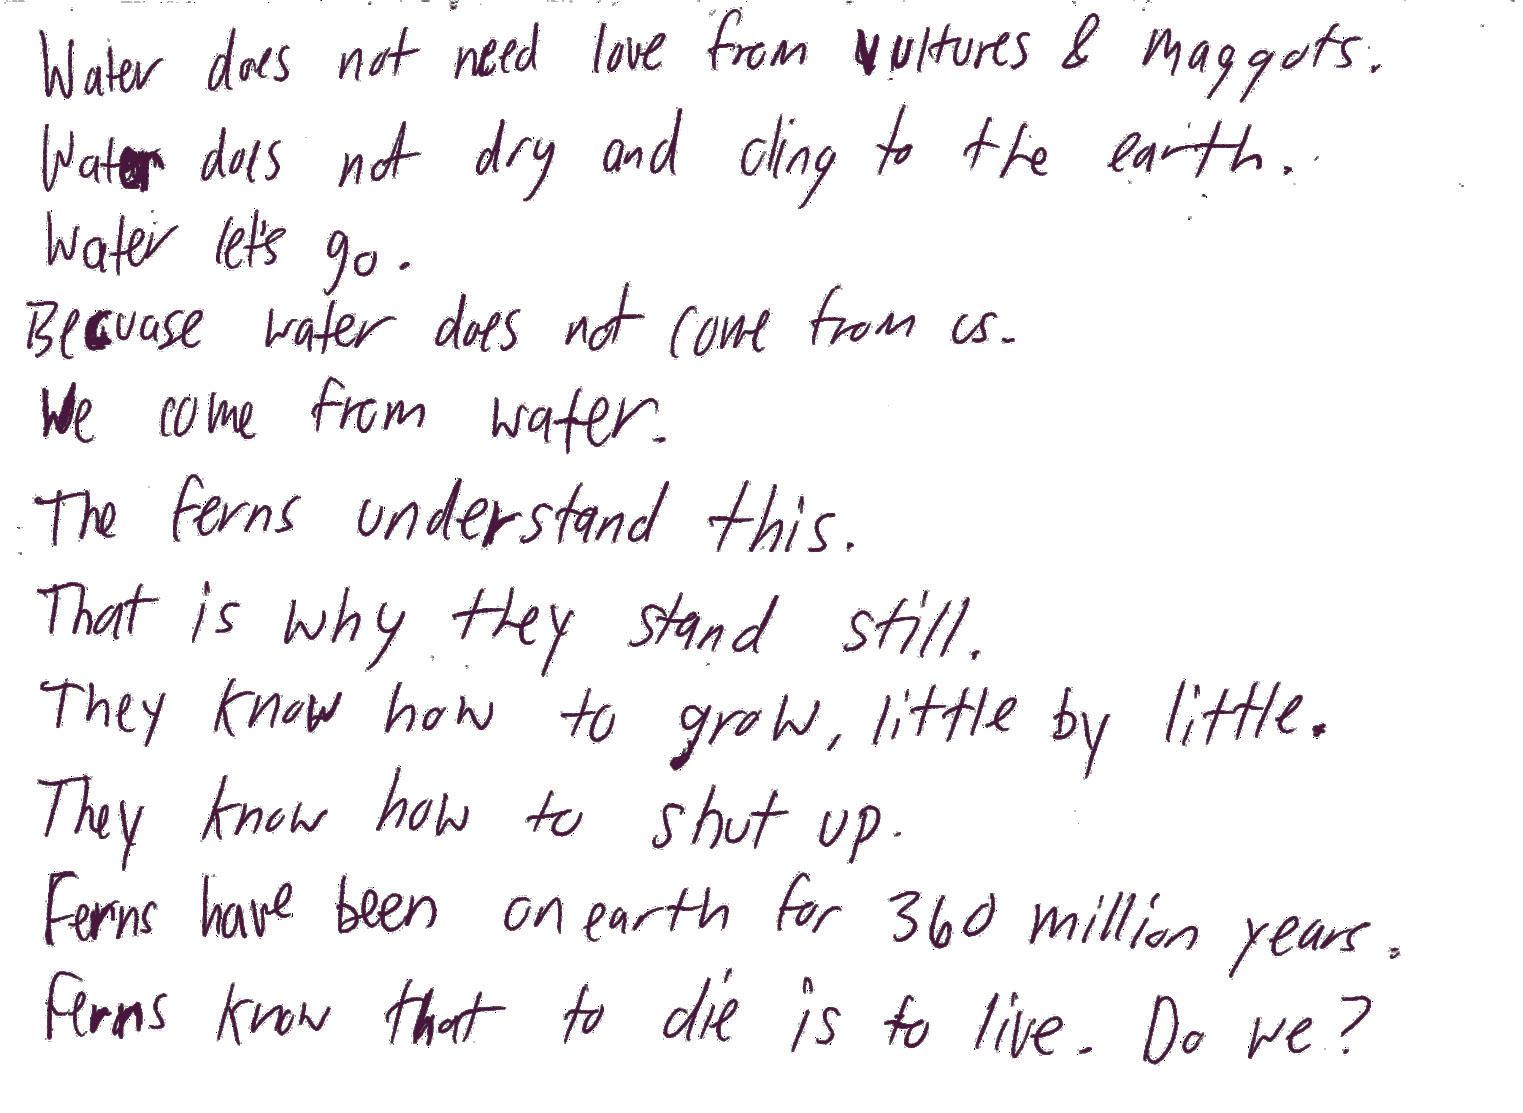 Water does not need love from vultures & maggots.
Water does not dry and cling to the earth.
Water let's go.
Becuase water does not come from us.
We come from water.
The ferns understand this.
That is why they stand still.
They know how to grow, little by little.
They know how to shut up.
Ferns have been on earth for 360 million years.
Ferns know that to die is to live. Do we?